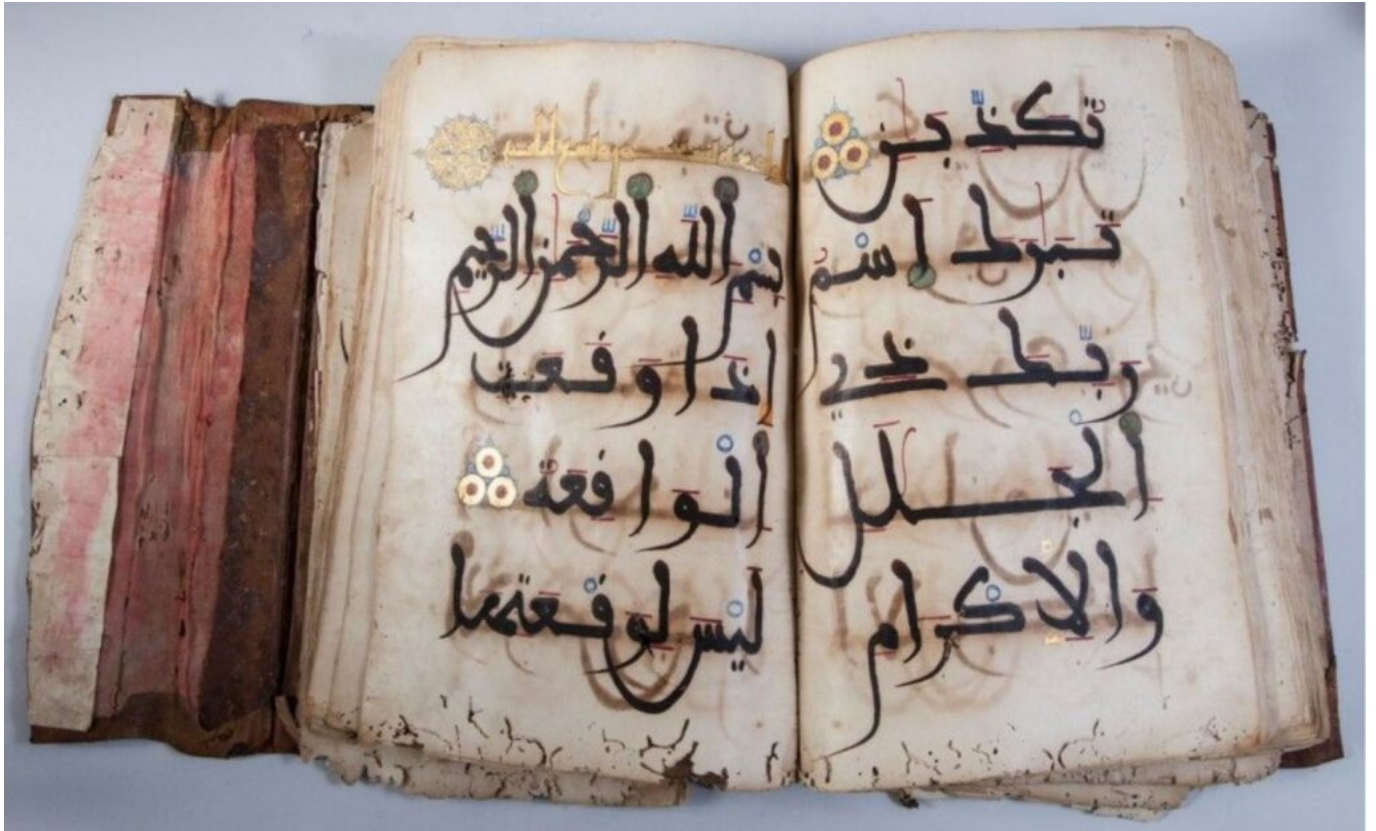 تُكَذِّبَٰنِ
تَبَٰرَكَ اسْمُ
رَبِّكَ ذِي
الْجَلَٰلِ
وَالْإِكْرَامِ
بِسْمِ اللَّهِ الرَّحْمَٰنِ الرَّحِيمِ
إِذَا وَقَعَتِ
الْوَاقِعَةُ
لَيْسَ لِوَقْعَتِهَا